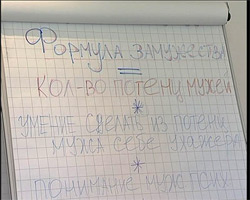 ФОРМУЛА ЗАМУЖЕСТВА
=
КОЛ-ВО ПОТЕНЦ МУЖЕЙ
*
УМЕНИЕ СДЕЛАТЬ ИЗ ПОТЕНЦ
МУЖА СЕБЕ УХАЖЕРА
*
ПОНИМАНИЕ МУЖ ПСИХ